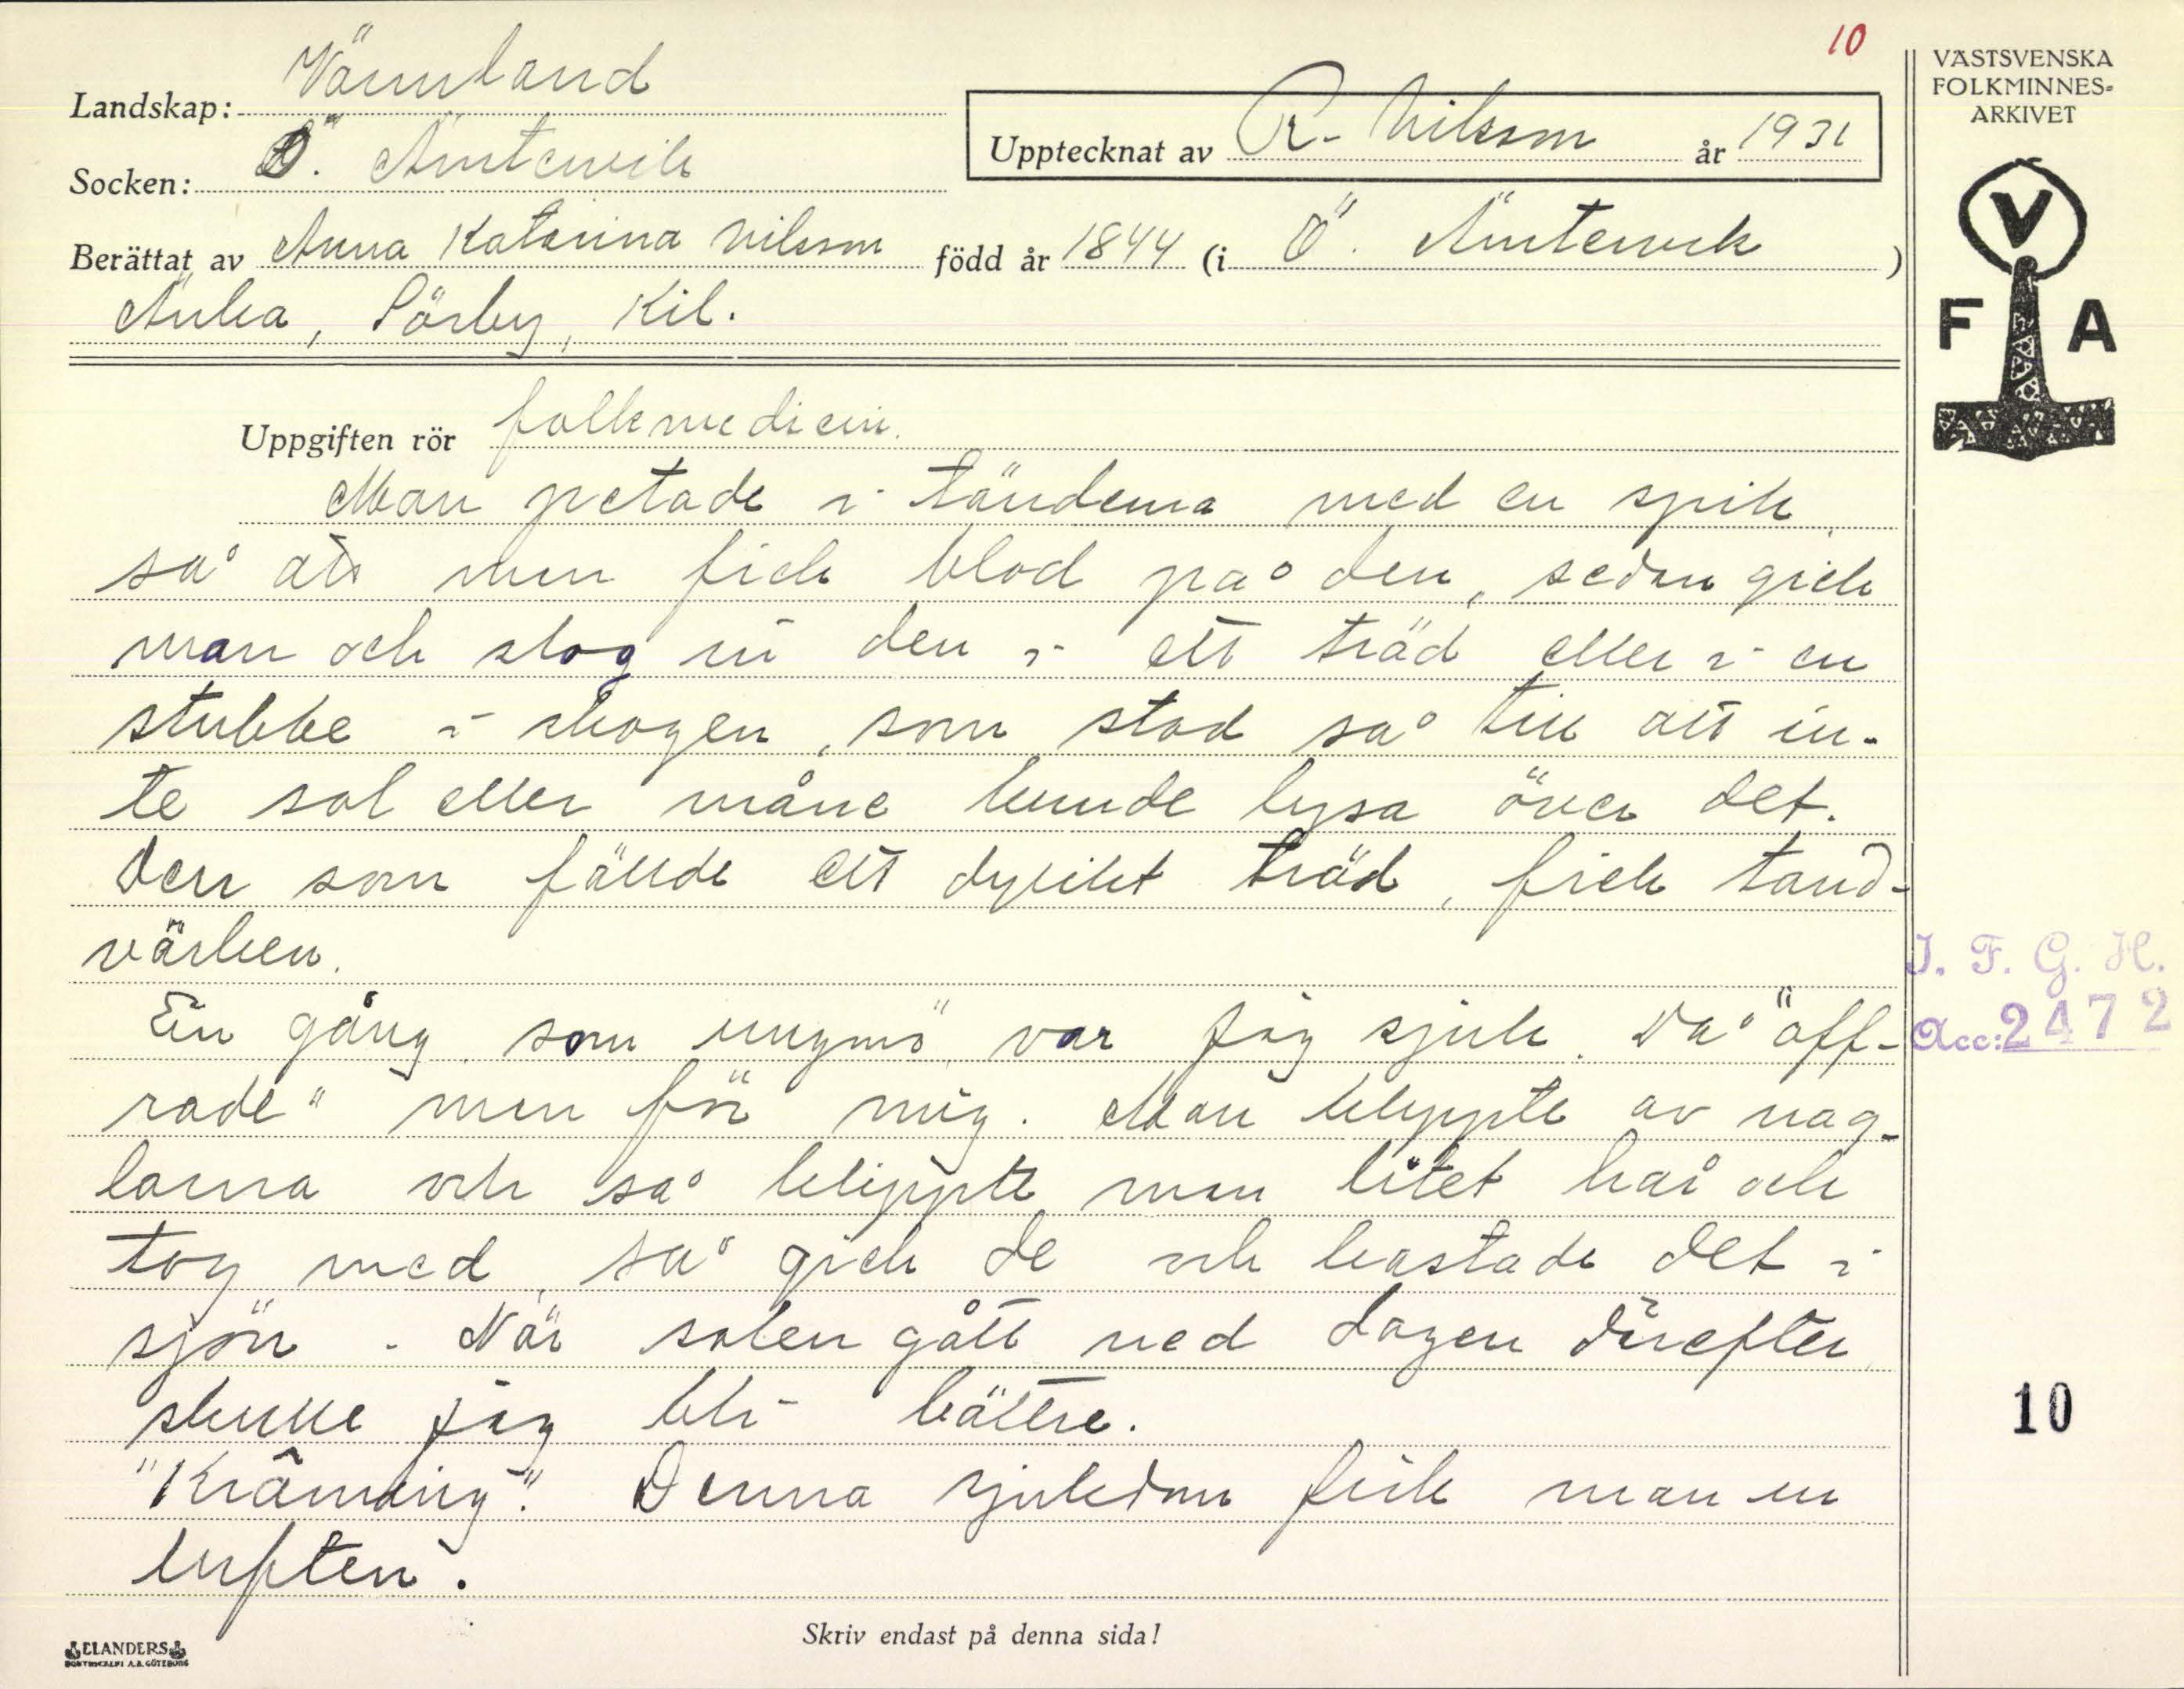 10
Landskap: Värmland
Socken: Ö. Ämtervik
Upptecknat av R. Nilsson år 1931
Berättat av Anna Katarina Nilsson född år 1844 (i Ö. Ämtervik)
Änka, Sörby, Kil.
VÄSTSVENSKA
FOLKMINNES-
ARKIVET
V
F A
Uppgiften rör folkmedicin.
Man petade i tänderna med en spik
så att man fick blod på den, sedan gick
man och slog in den i ett träd eller i en
stubbe i skogen, som stod så till att in-
te sol eller måne kunde lysa över det.
Den som fällde ett dylikt träd, fick tand-
värken.
En gång som ungmö var jag sjuk. Då "off-
rade" man för mig. Man klippte av nag-
larna och så klippte man litet hår och
tog med, så gick de och kastade det i
sjön. När solen gått ned dagen därefter
skulle jag bli bättre.
"Krâmning". Denna sjukdom fick man ur
luften.
I. F. G. H.
Acc: 2472
10
Skriv endast på denna sida!
ELANDERS
BOKTRYCKERI A.B. GÖTEBORG